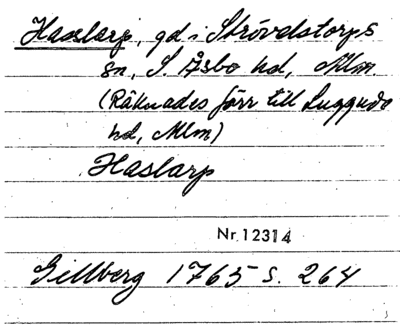 Haslarp, gd i Strövelstorps
sn, S. Åsbo hd, Mlm
(Räknades förr till Luggude
hd, Mlm)
Haslarp
Nr 12314
Gillberg 1765 s. 264